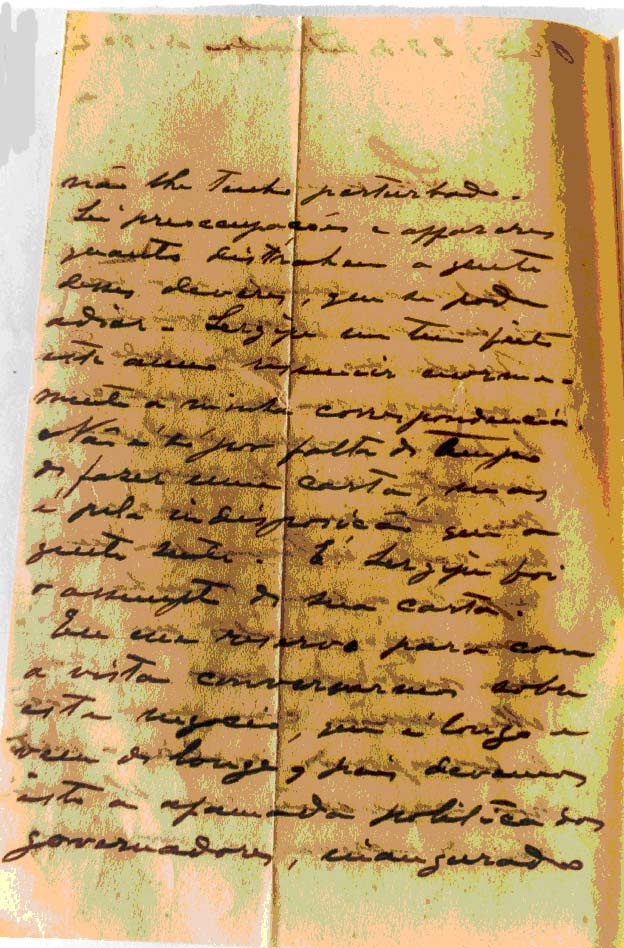 não lhe tenho perturbado.
Sei preocupações e affazeres
quanto distrahem a gente
desses deveres, que se pode
adiar. Sergipe me tem feito
este anno minguir enorme-
mente a minha correspondencia.
Não é só por falta de tempo
de fazer uma carta, mas
e pela indisposição que a
gente sente. E Sergipe foi
o assumpto de sua carta.
Eu me reservo para com
a vista conversarmos sobre
este negocio, que é longo e
vem de longe, pois devemos
isto a afamada politica dos
governadores, inaugurada